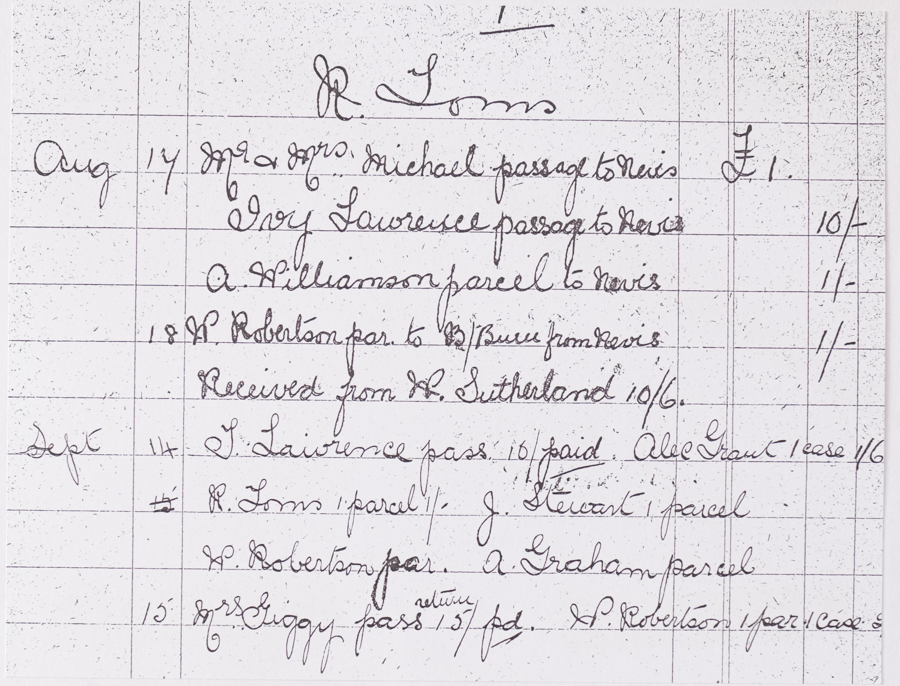 1
R. Toms
Aug 17 Mr & Mrs. Michael passage to Nevis £1.
Ivy Lawrence passage to Nevis 10/-
A. Williamson parcel to Nevis 1/-
18 W. Robertson par. to B/Buru from Nevis 1/-
Received from W. Sutherland 10/6.
Sept 14 T. Lawrence pass 10/ paid. Alec Grant 1 case 1/6
15 R. Toms 1 parcel 1/- J. Stewart 1 parcel
W. Robertson par. A. Graham parcel
15 Mrs Giggy pass return 15/ pd. W. Robertson 1 par 1 case